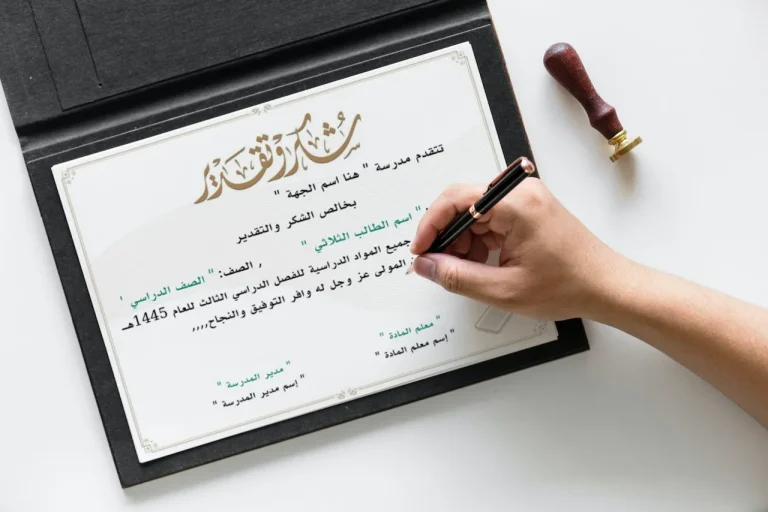 شكر وتقدير
تتقدم مدرسة " هنا اسم الجهة "
بخالص الشكر والتقدير
" اسم الطالب الثلاثي "
, الصف: " الصف الدراسي "
جميع المواد الدراسية للفصل الدراسي الثالث للعام 1445هـ
المولى عز وجل له وافر التوفيق والنجاح,,,,
" معلم المادة "
" إسم معلم المادة "
" مدير المدرسة "
" إسم مدير المدرسة "